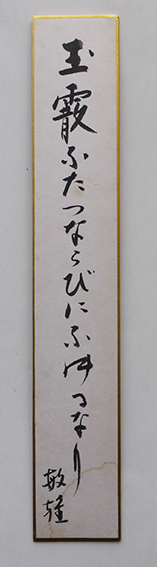 玉霰ふたつならびにふゆるなり
敏雄